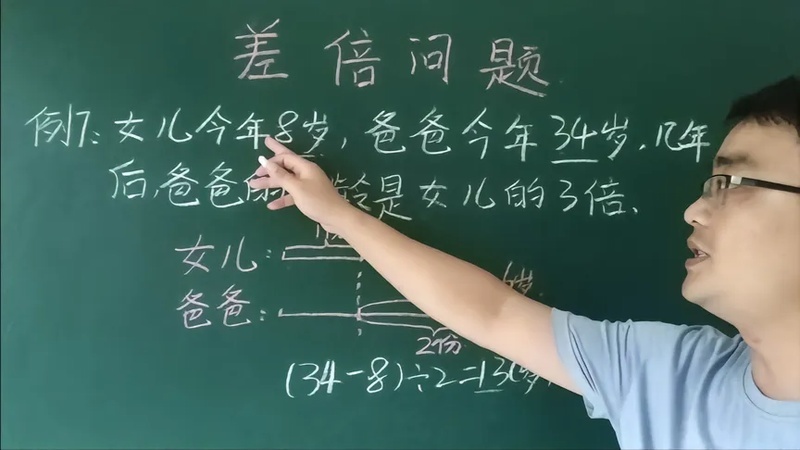 差倍问题
例7:女儿今年8岁,爸爸今年34岁,几年
后,爸爸的龄是女儿的3倍.
女儿:
爸爸:
岁
2份
(34-8)÷2=13(岁